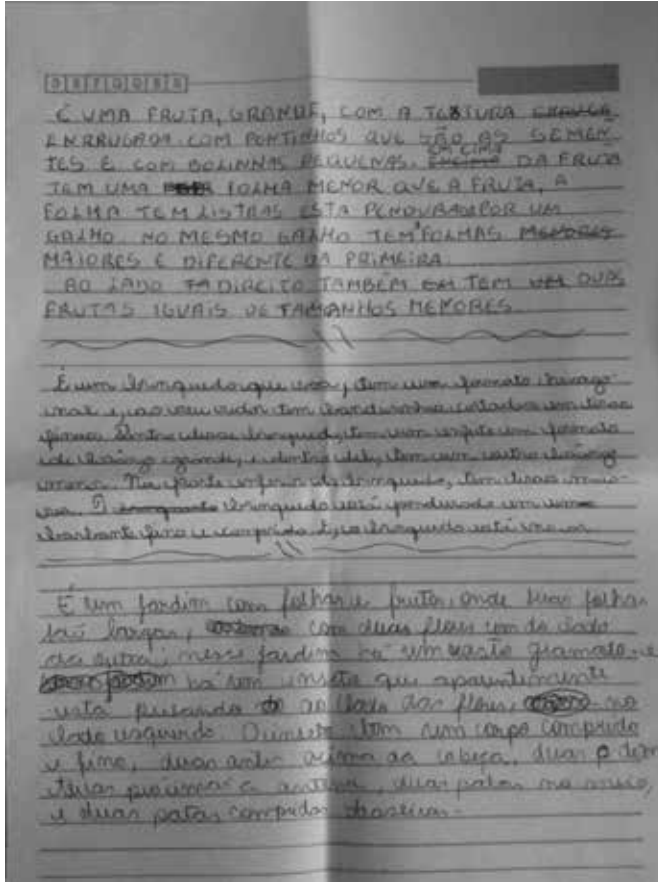 D S T Q Q S S
É UMA FRUTA, GRANDE, COM A TEXTURA
ENRRUGADA COM PONTINHOS QUE SÃO AS SEMEN-
TES E COM BOLINHAS PEQUENAS. EM CIMA DA FRUTA
TEM UMA FOLHA MENOR QUE A FRUTA, A
FOLHA TEM LISTRAS ESTA PENDURADA POR UM
GALHO. NO MESMO GALHO TEM FOLHAS MENORES
MAIORES E DIFERENTE DA PRIMEIRA.
AO LADO DIREITO TAMBÉM TEM DUAS
FRUTAS IGUAIS DE TAMANHOS MENORES
É um brinquedo que voa, tem um formato hexago-
nal e, ao seu redor tem bandeirinhas cortadas em tiras
finas. Dentro desse brinquedo, tem um enfeite em formato
de triângo grande, e dentro dele, tem um outro triângo
menor. Na parte inferior do brinquedo, tem tiras
O brinquedo está pendurado em um
barbante fino e comprido e, o brinquedo está no ar
É um jardim com folhas e frutos onde suas folhas
são largas, com duas flores um do lado
da outra, nesse jardim há um vasto gramado e
há um inseto que aparentemente
está pulando ao lado das flores, no
lado esquerdo. O inseto tem um corpo comprido
e fino, duas antes acima da cabeça, duas
a antena, duas patas no meio,
e duas patas compridas traseiras.